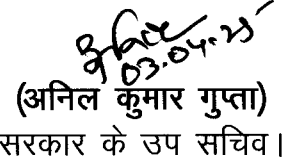 03.04.25
(अनिल कुमार गुप्ता)
सरकार के उप सचिव।